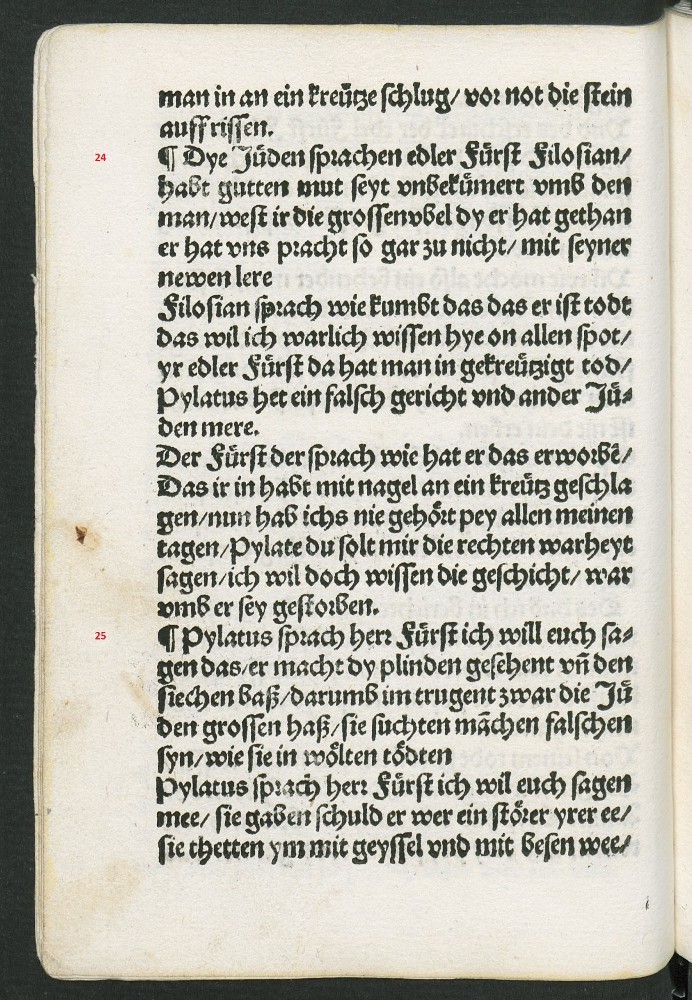 man in an ein kreütze ſchlug/ vor not die ſtein
auff riſſen.
24
¶ Dye Jüden ſprachen edler Fürſt Filoſian/
habt gutten mut ſeyt vnbekümert vmb den
man/weſt ir die groſſenvbel dy er hat gethan
er hat vns pracht ſo gar zu nicht/ mit ſeyner
newen lere
Filoſian ſprach wie kumbt das das er iſt todt
das wil ich warlich wiſſen hye on allen ſpot/
yr edler Fürſt da hat man in gekreützigt tod/
Pylatus het ein falſch gericht vnd ander Jü⸗
den mere.
Der Fürſt der ſprach wie hat er das erworbẽ/
Das ir in habt mit nagel an ein kreütz geſchla
gen/nun hab ichs nie gehört pey allen meinen
tagen/Pylate du ſolt mir die rechten warheyt
ſagen/ich wil doch wiſſen die geſchicht/ war
vmb er ſey geſtorben.
25
¶ Pylatus ſprach herr Fürſt ich will euch ſa⸗
gen das/er macht dy plinden geſehent vñ den
ſiechen baß/darumb im trugent zwar die Jü
den groſſen haß/ſie ſuchten mãchen falſchen
ſyn/wie ſie in wölten tödten
Pylatus ſprach herr Fürſt ich wil euch ſagen
mee/ ſie gaben ſchuld er wer ein ſtörer yrer ee/
ſie thetten ym mit geyſſel vnd mit beſen wee/